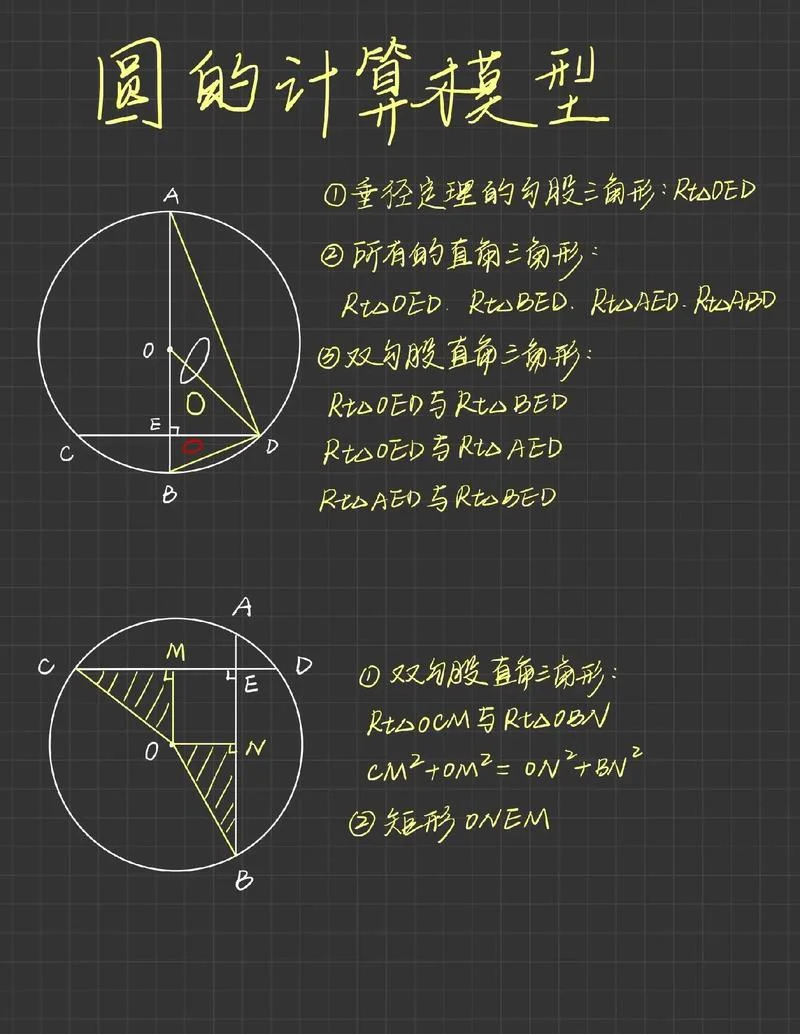 圆的计算模型
①垂径定理的勾股三角形:Rt△OED
②所有的直角三角形:
Rt△OED. Rt△BED. Rt△AED. Rt△ABD
③双勾股直角三角形:
Rt△OED与Rt△BED
Rt△OED与Rt△AED
Rt△AED与Rt△BED
A
O
E
C
D
B
①双勾股直角三角形:
Rt△OCM与Rt△OBN
CM²+OM²=ON²+BN²
②矩形ONEM
A
C
M
D
E
O
N
B